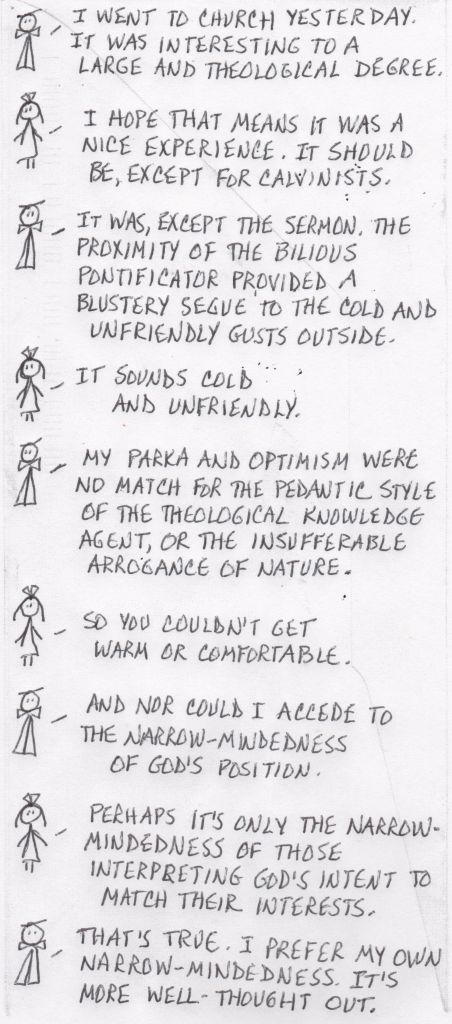 I WENT TO CHURCH YESTERDAY.
IT WAS INTERESTING TO A
LARGE AND THEOLOGICAL DEGREE.
I HOPE THAT MEANS IT WAS A
NICE EXPERIENCE. IT SHOULD
BE, EXCEPT FOR CALVINISTS.
IT WAS, EXCEPT THE SERMON. THE
PROXIMITY OF THE BILIOUS
PONTIFICATOR PROVIDED A
BLUSTERY SEGUE TO THE COLD AND
UNFRIENDLY GUSTS OUTSIDE.
IT SOUNDS COLD
AND UNFRIENDLY.
MY PARKA AND OPTIMISM WERE
NO MATCH FOR THE PEDANTIC STYLE
OF THE THEOLOGICAL KNOWLEDGE
AGENT, OR THE INSUFFERABLE
ARROGANCE OF NATURE.
SO YOU COULDN'T GET
WARM OR COMFORTABLE.
AND NOR COULD I ACCEDE TO
THE NARROW-MINDEDNESS
OF GOD'S POSITION.
PERHAPS IT'S ONLY THE NARROW-
MINDEDNESS OF THOSE
INTERPRETING GOD'S INTENT TO
MATCH THEIR INTERESTS.
THAT'S TRUE. I PREFER MY OWN
NARROW-MINDEDNESS. IT'S
MORE WELL-THOUGHT OUT.